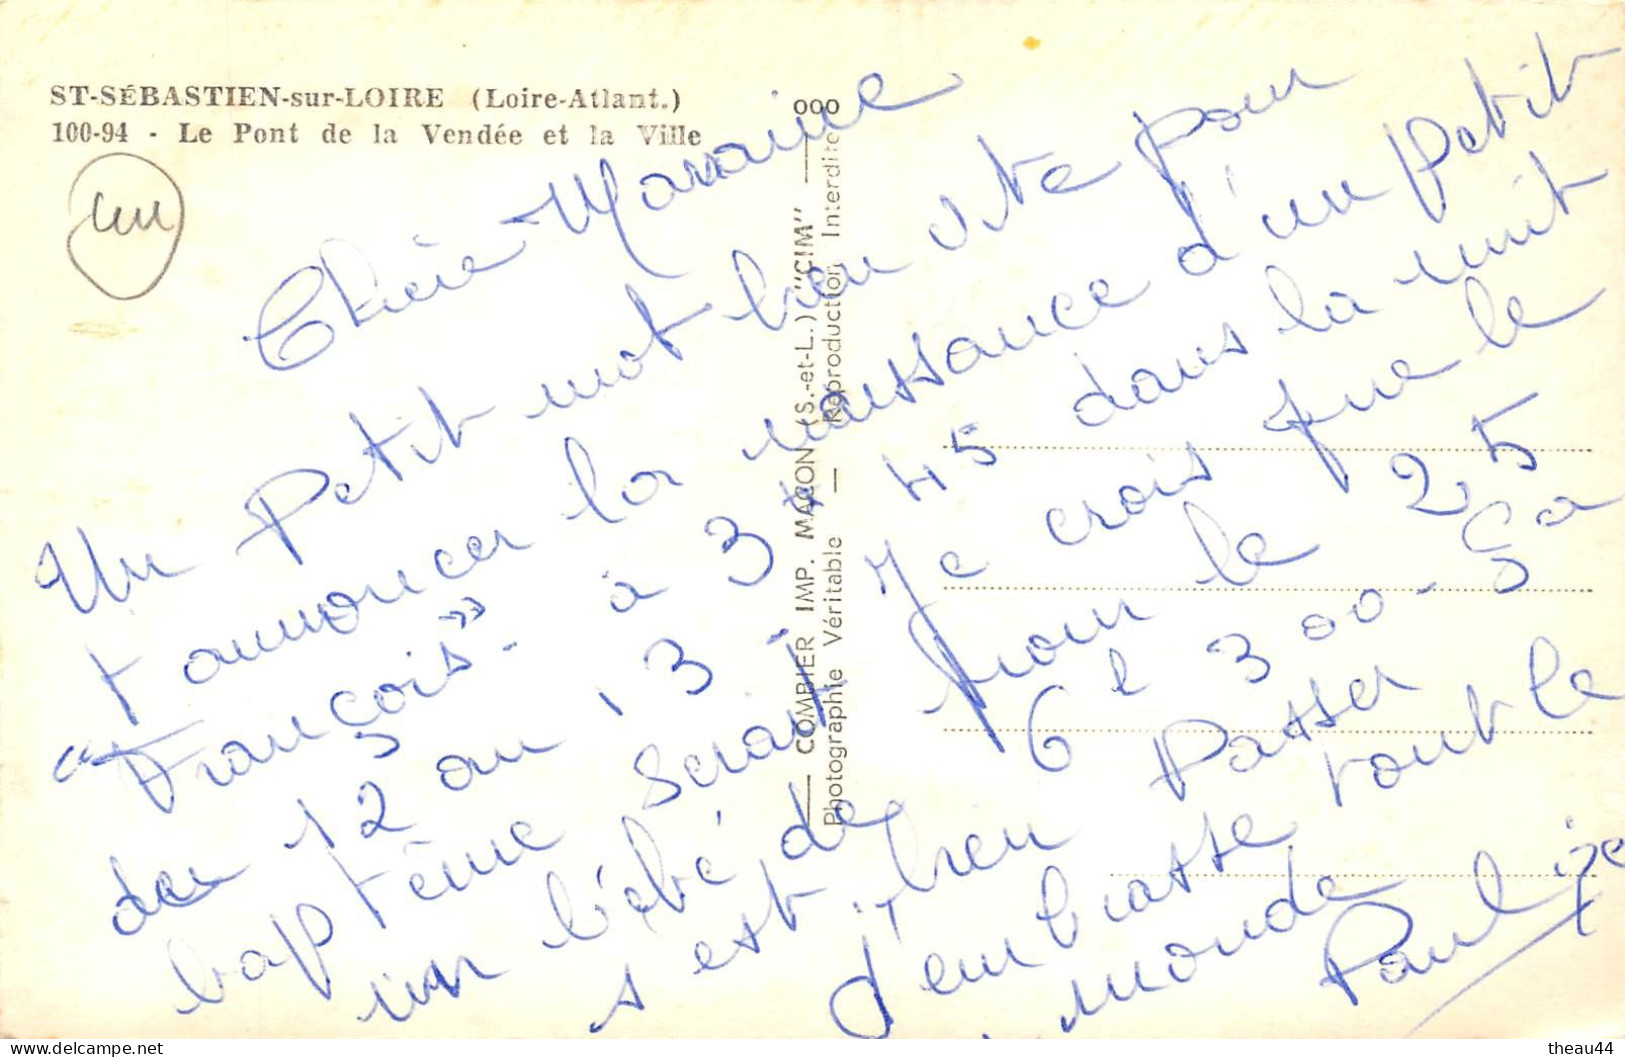 ST-SÉBASTIEN-sur-LOIRE (Loire-Atlant.)
100-94 - Le Pont de la Vendée et la Ville
Chère Marraine
Un Petit mot bien vite pour
t'annoncer la naissance d'un Petit
"François" - à 3h 45 dans la nuit
du 12 au 13 Je crois que le
baptême serait pour le 25
un bébé de 6l 300 - ça
s'est bien Passer
J'embrasse tout le
monde
Paulixe
000
COMBIER IMP. MACON (S.-et-L.) "CIM"
Photographie Véritable — Reproduction Interdite
theau44